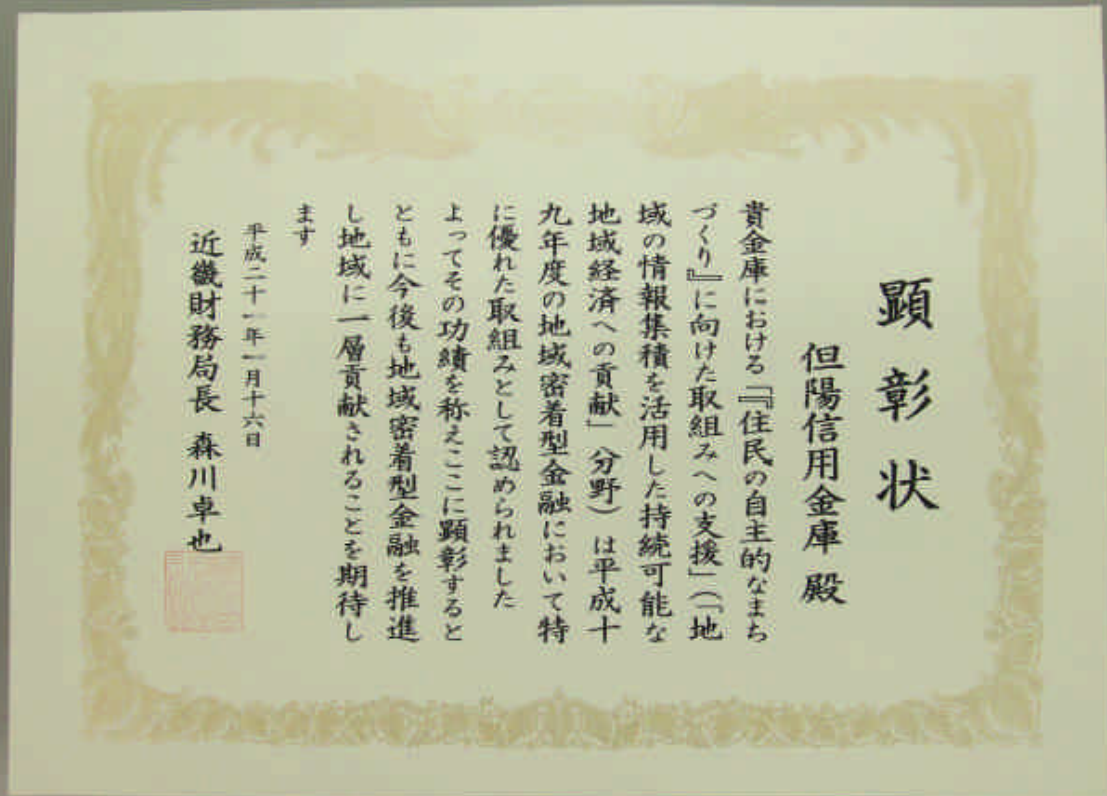 顕彰状
但陽信用金庫 殿
貴金庫における「『住民の自主的なまち
づくり』に向けた取組みへの支援」（「地
域の情報集積を活用した持続可能な
地域経済への貢献」分野）は平成十
九年度の地域密着型金融において特
に優れた取組みとして認められました
よってその功績を称えここに顕彰すると
ともに今後も地域密着型金融を推進
し地域に一層貢献されることを期待し
ます
平成二十一年一月十六日
近畿財務局長 森川卓也